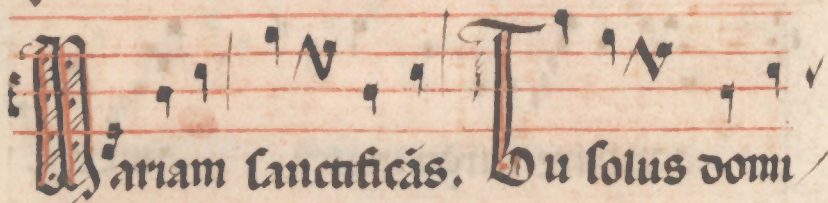 Mariam sanctificãs. Tu solus domi